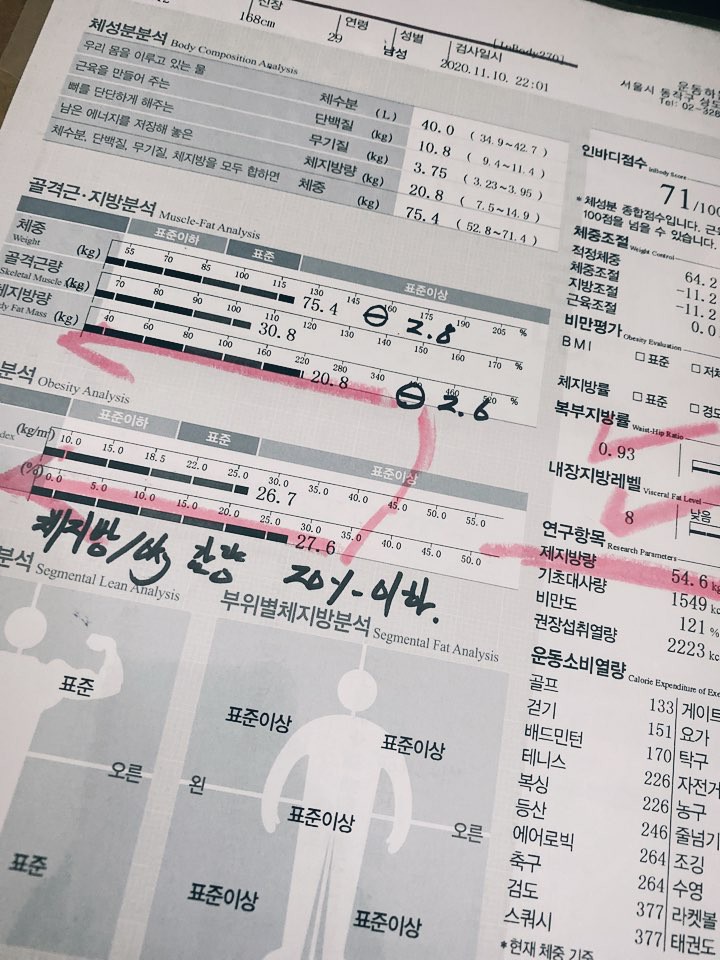 신장
168cm
연령
29
성별
남성
검사일시
2020.11.10. 22:01
[InBody270]
서울시 동작구
Tel: 02-328
체성분분석 Body Composition Analysis
우리 몸을 이루고 있는 물 체수분 (L) 40.0 ( 34.9~42.7 )
근육을 만들어 주는 단백질 (kg) 10.8 ( 9.4~11.4 )
뼈를 단단하게 해주는 무기질 (kg) 3.75 ( 3.23~3.95 )
남은 에너지를 저장해 놓은 체지방량 (kg) 20.8 ( 7.5~14.9 )
체수분, 단백질, 무기질, 체지방을 모두 합하면 체중 (kg) 75.4 ( 52.8~71.4 )
골격근·지방분석 Muscle-Fat Analysis
표준이하 표준 표준이상
체중 Weight (kg) 55 70 85 100 115 130 145 160 175 190 205 %
75.4 ⊖ 2.8
골격근량 Skeletal Muscle (kg) 70 80 90 100 110 120 130 140 150 160 170 %
30.8
체지방량 Fat Mass (kg) 40 60 80 100 160 220 280 340 460 520 %
20.8 ⊖ 2.6
분석 Obesity Analysis
표준이하 표준 표준이상
(kg/m²) 10.0 15.0 18.5 22.0 25.0 30.0 35.0 40.0 45.0 50.0 55.0
26.7
(%) 0.0 5.0 10.0 15.0 20.0 25.0 30.0 35.0 40.0 45.0 50.0
27.6
체지방/ 감량 20%-이하.
분석 Segmental Lean Analysis
표준
오른
표준
부위별체지방분석 Segmental Fat Analysis
표준이상 표준이상
왼 표준이상 오른
표준이상 표준이상
인바디점수 InBody Score
71/100
* 체성분 종합점수입니다. 근육
100점을 넘을 수 있습니다.
체중조절 Weight Control
적정체중 64.2
체중조절 -11.2
지방조절 -11.2
근육조절 0.0
비만평가 Obesity Evaluation
BMI □ 표준 □ 저체
체지방률 □ 표준 □ 경도
복부지방률 Waist-Hip Ratio
0.93
내장지방레벨 Visceral Fat Level
8 낮음
연구항목 Research Parameters
제지방량 54.6 kg
기초대사량 1549 kc
비만도 121 %
권장섭취열량 2223 kc
운동소비열량 Calorie Expenditure of Exe
골프 133 게이트
걷기 151 요가
배드민턴 170 탁구
테니스 226 자전거
복싱 226 농구
등산 246 줄넘기
에어로빅 264 조깅
축구 264 수영
검도 377 라켓볼
스쿼시 377 태권도
*현재 체중 기준